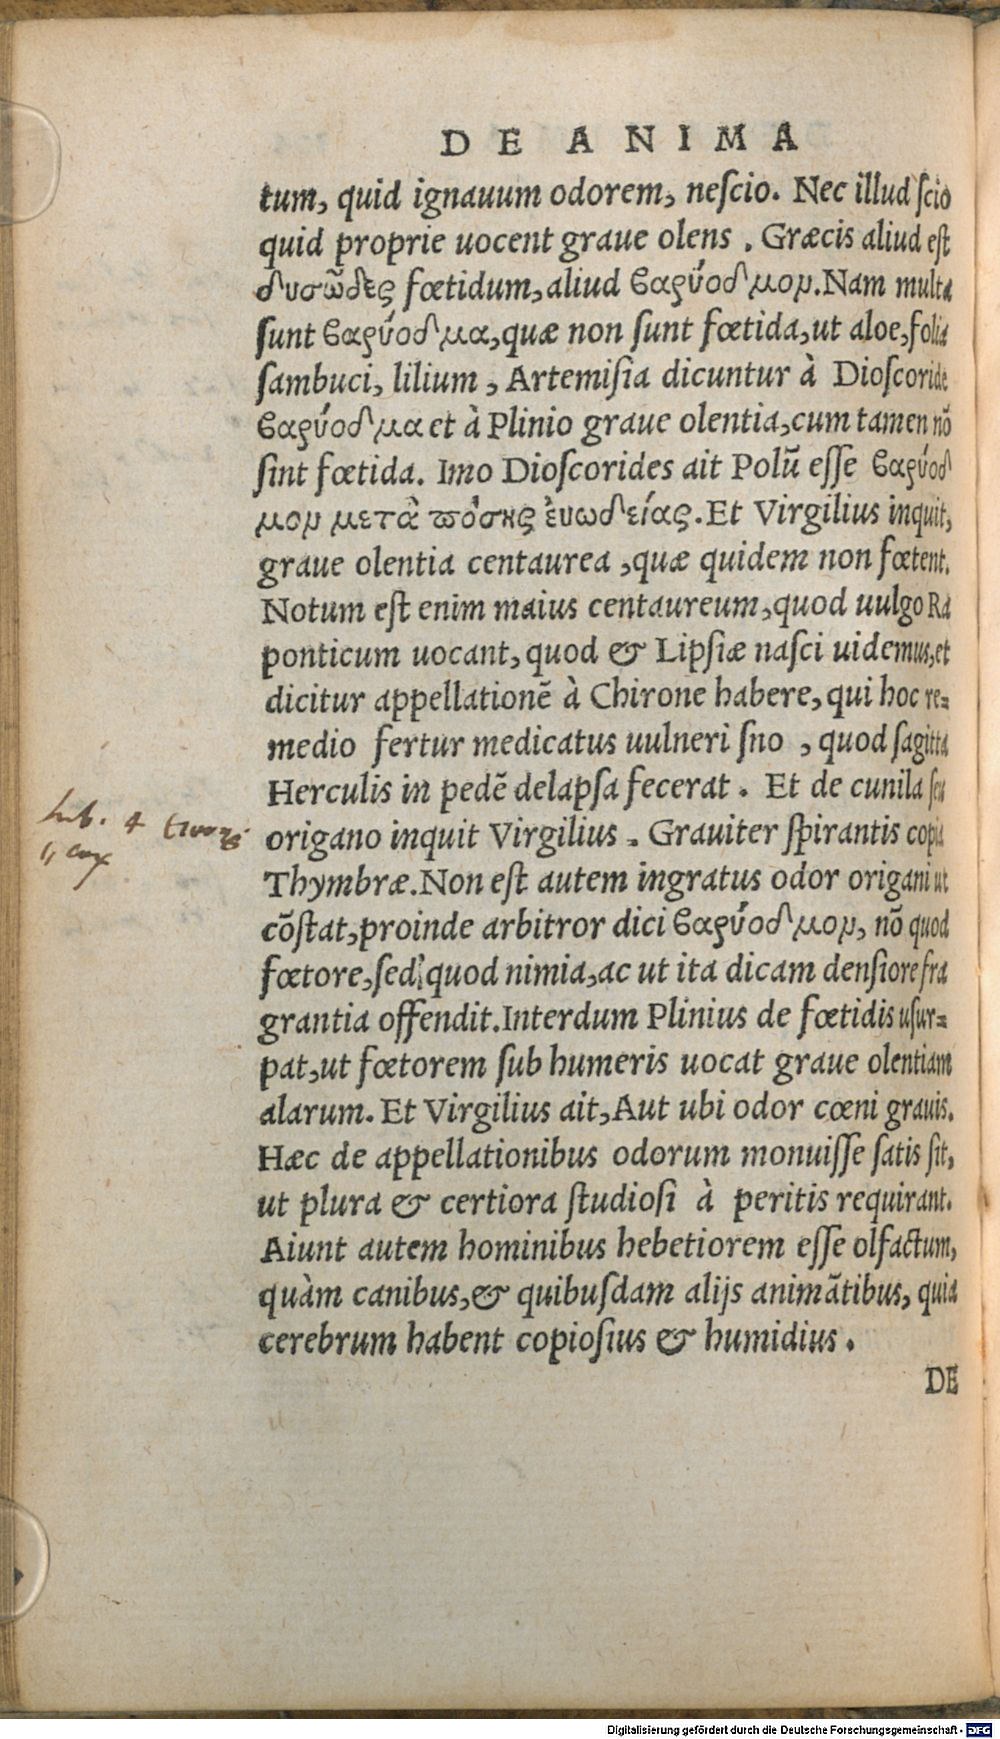 DE ANIMA
tum, quid ignauum odorem, nescio. Nec illud scio
quid proprie uocent graue olens . Græcis aliud est
δυσῶδες fœtidum, aliud βαρύοδμον. Nam multa
sunt βαρύοδμα, quæ non sunt fœtida, ut aloe, folia
sambuci, lilium, Artemisia dicuntur à Dioscoride
βαρύοδμα et à Plinio graue olentia, cum tamen nõ
sint fœtida. Imo Dioscorides ait Polũ esse βαρύοδ
μον μετὰ πόσης ἐυωδείας. Et Virgilius inquit,
graue olentia centaurea, quæ quidem non fœtent.
Notum est enim maius centaureum, quod uulgo Ra
ponticum uocant, quod & Lipsiæ nasci uidemus, et
dicitur appellationẽ à Chirone habere, qui hoc re-
medio fertur medicatus uulneri sno , quod sagitta
Herculis in pedẽ delapsa fecerat . Et de cunila seu
origano inquit Virgilius . Grauiter spirantis copia
Lib. 4
Thymbræ. Non est autem ingratus odor origani ut
cõstat, proinde arbitror dici βαρύοδμον, nõ quod
fœtore, sed quod nimia, ac ut ita dicam densiore fra
grantia offendit. Interdum Plinius de fœtidis usur-
pat, ut fœtorem sub humeris uocat graue olentiam
alarum. Et Virgilius ait, Aut ubi odor cœni grauis.
Hæc de appellationibus odorum monuisse satis sit,
ut plura & certiora studiosi à peritis requirant.
Aiunt autem hominibus hebetiorem esse olfactum,
quàm canibus, & quibusdam alijs animãtibus, quia
cerebrum habent copiosius & humidius .
DE
Digitalisierung gefördert durch die Deutsche Forschungsgemeinschaft - DFG